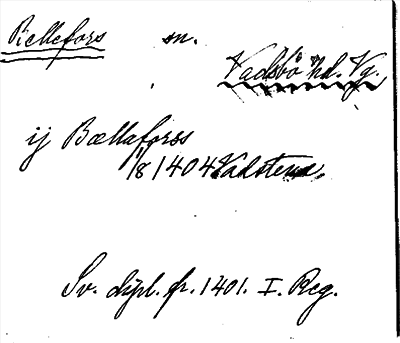 Bellefors sn.
Vadsbo hd. Vg.
ij Bællaforss
1/8 1404 Vadstena.
Sv. dipl. fr. 1401. I. Reg.